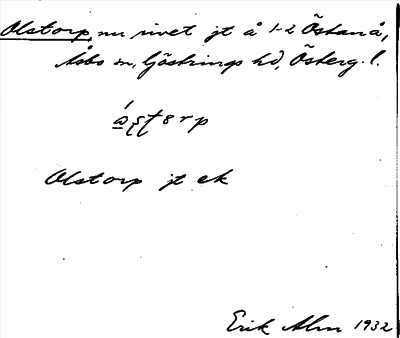 Olstorp, nu rivet jt å 1-2 Östanå,
Åsbo sn, Göstrings hd, Österg. l.
Olstorp jt ek
Erik Alm 1932